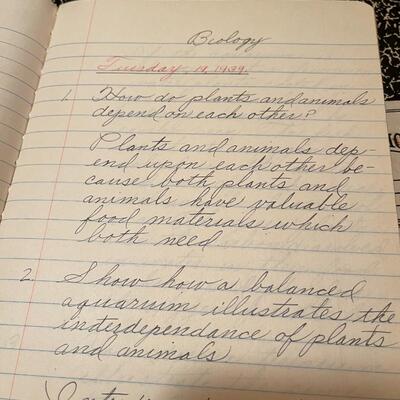 Biology
Tuesday 19, 1939.
1. How do plants and animals
depend on each other?
Plants and animals dep-
end upon each other be-
cause both plants and
animals have valuable
food materials which
both need
2. Show how a balanced
aquarium illustrates the
interdependance of plants
and animals